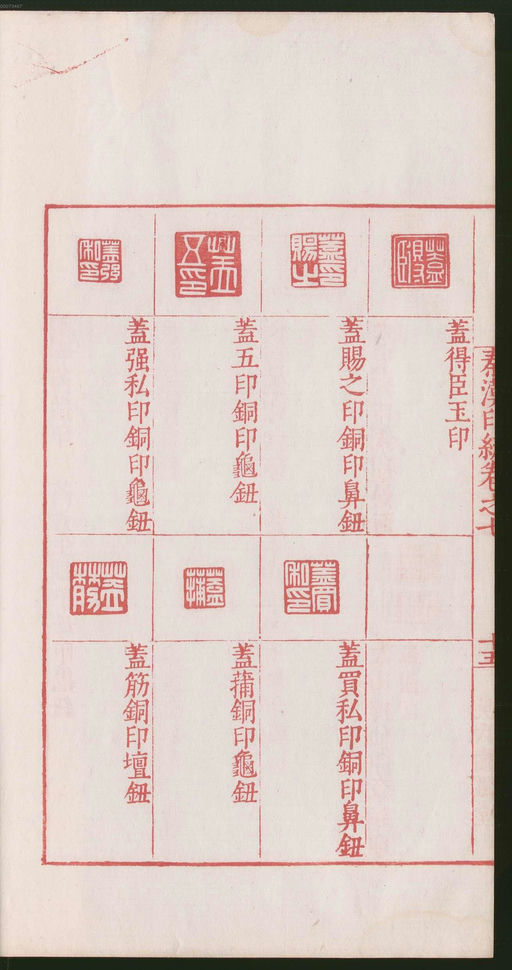 秦漢印統卷之七
十五
蓋得臣玉印
蓋賜之印銅印鼻鈕
蓋五印銅印龜鈕
蓋强私印銅印龜鈕
蓋買私印銅印鼻鈕
蓋蒱銅印龜鈕
蓋筋銅印壇鈕